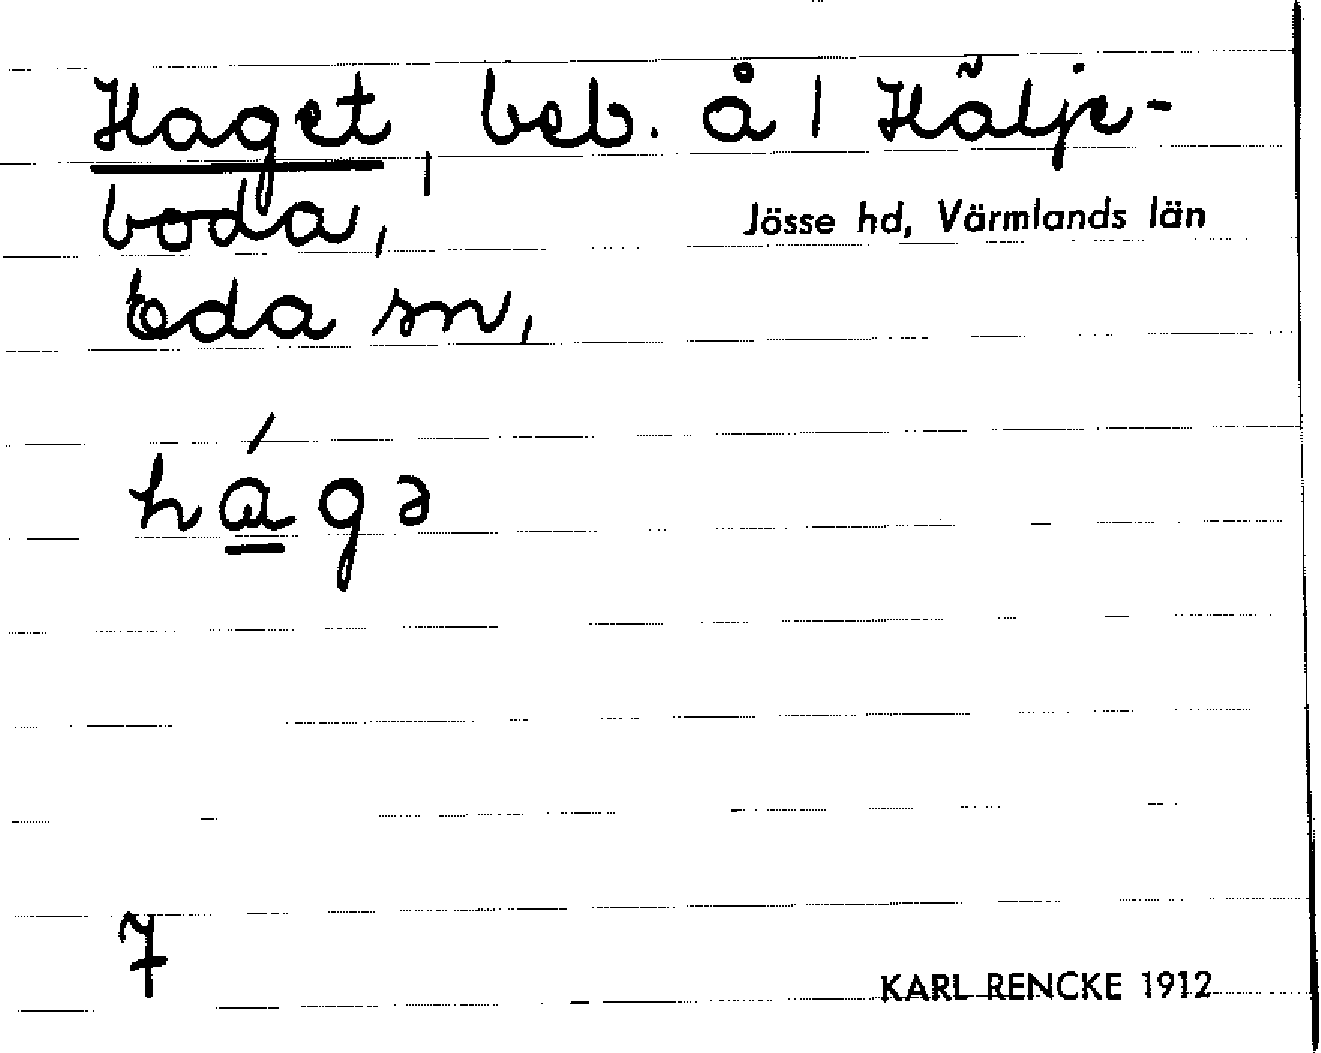 Haget, beb. å 1 Hälje-
boda,
Jösse hd, Värmlands län
Eda sn,
hágə
7
KARL RENCKE 1912